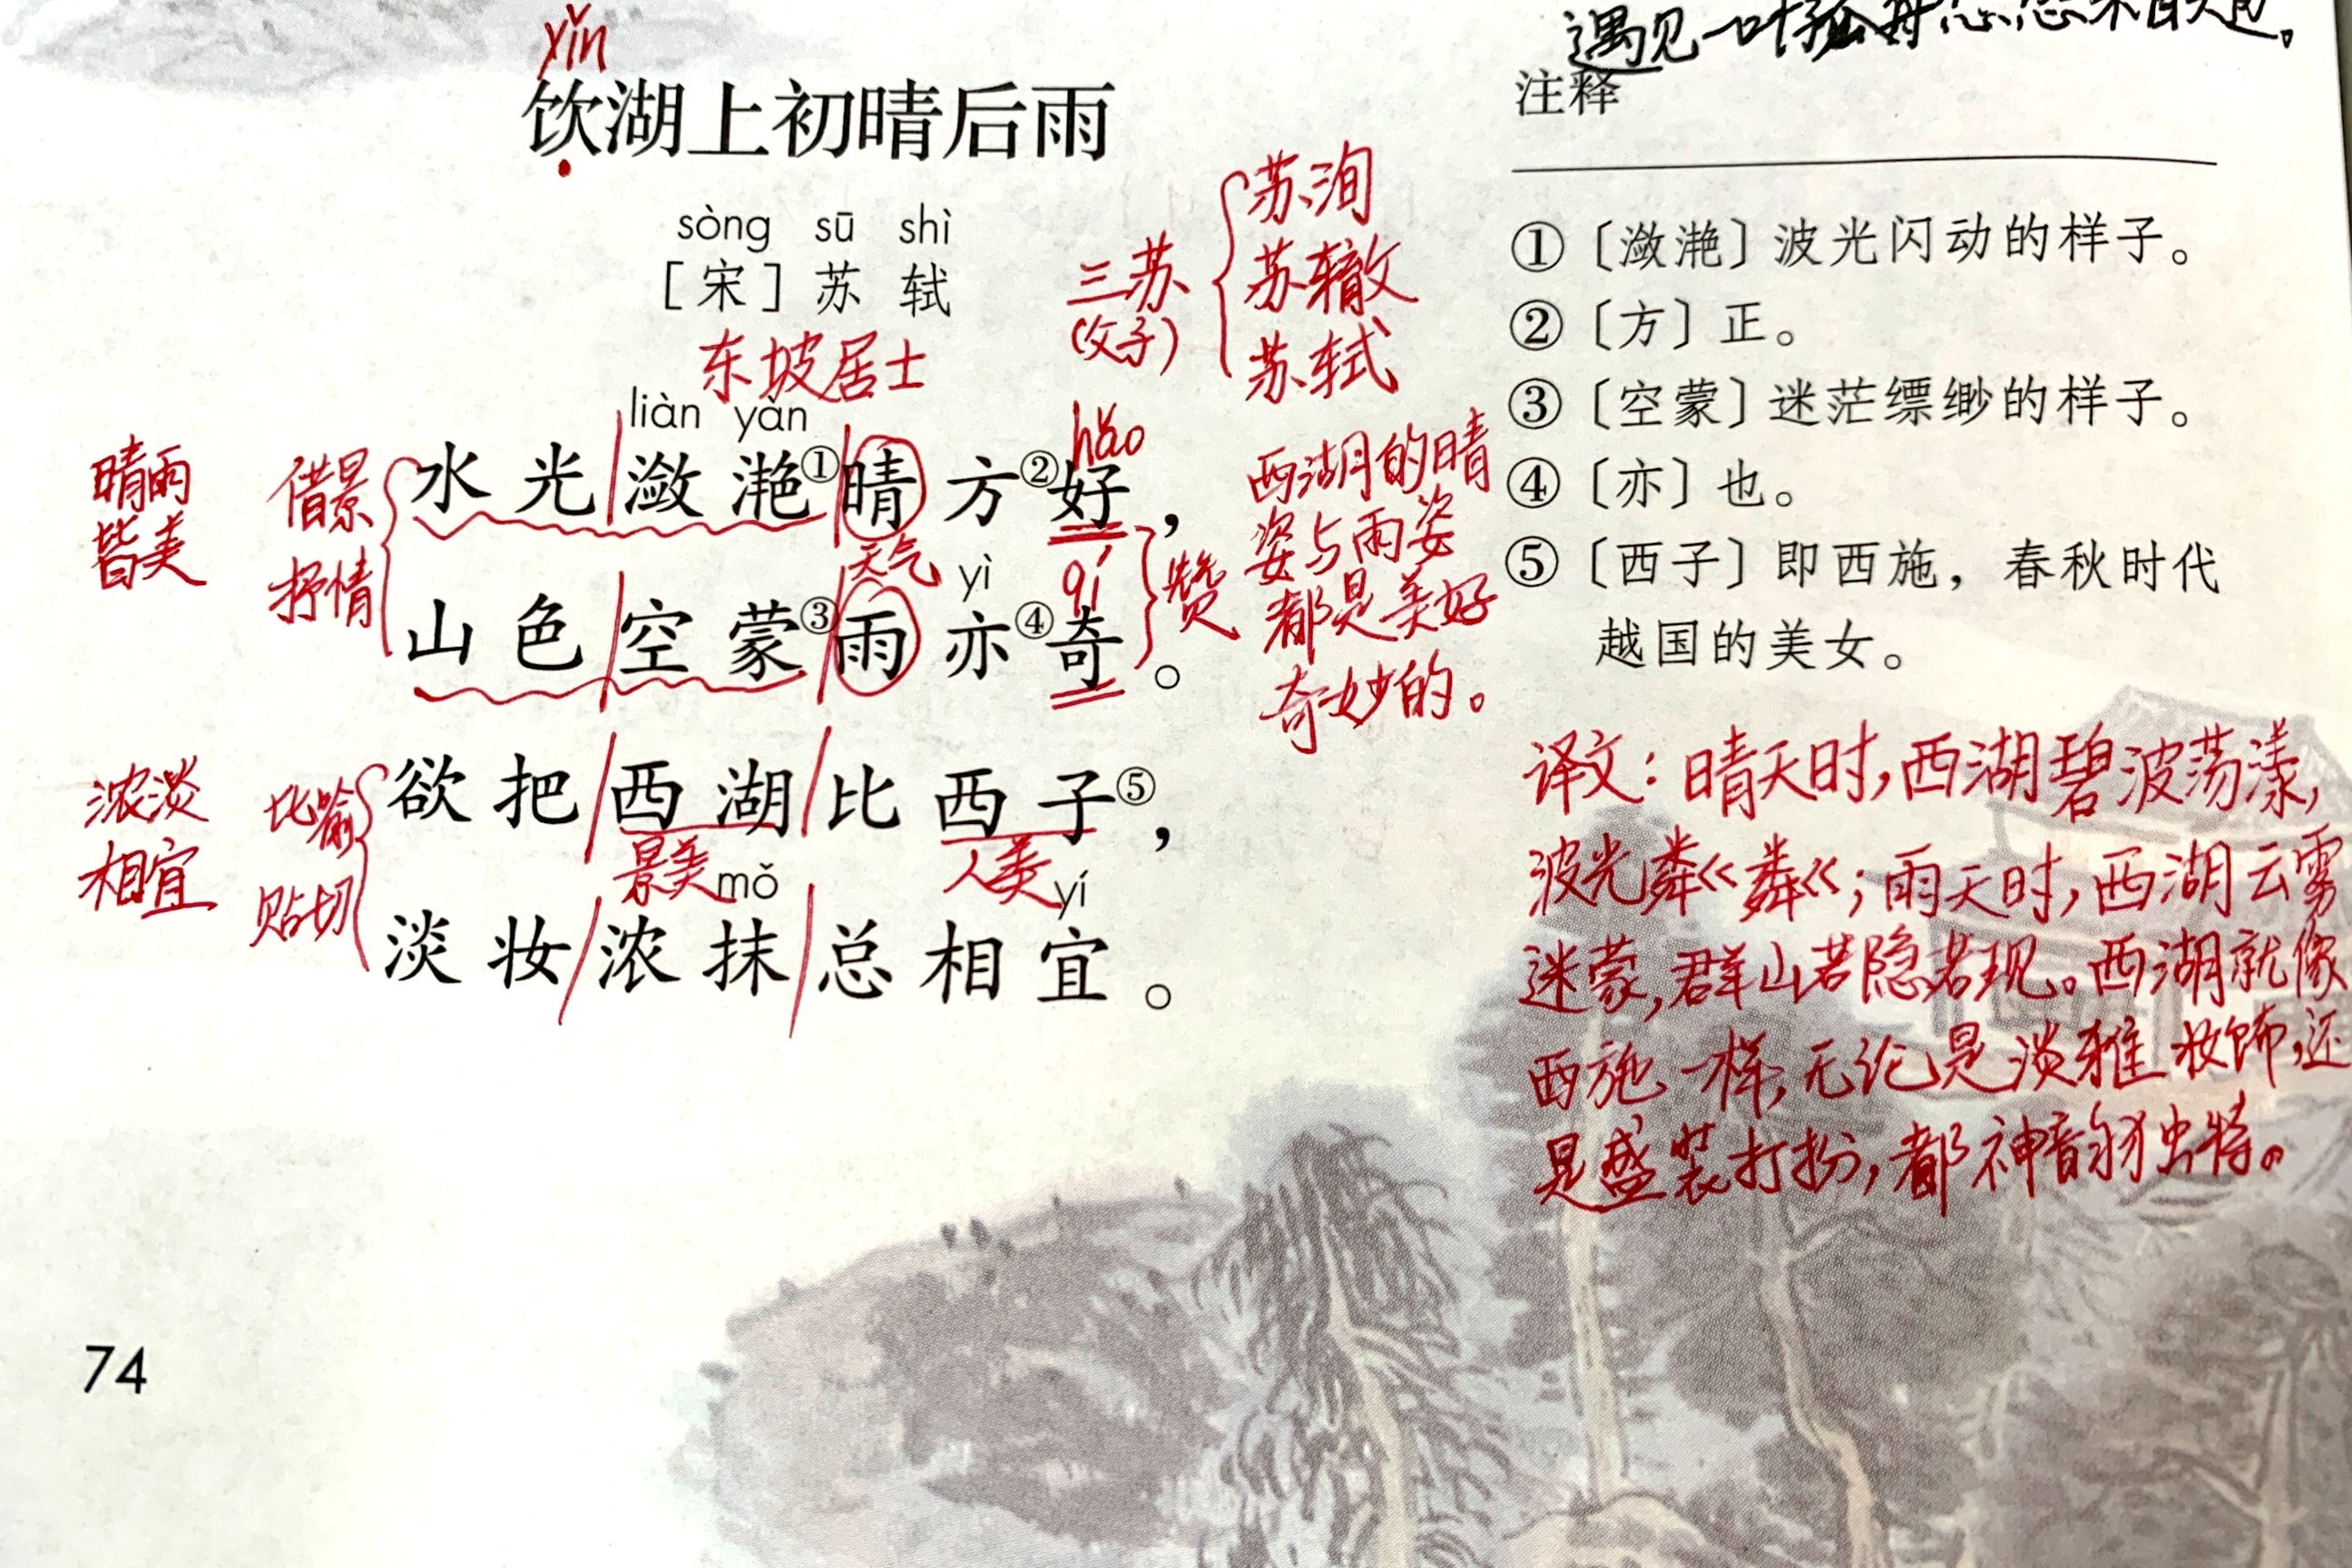 遇见一叶孤舟
yǐn
饮湖上初晴后雨
sòng sū shì
[宋] 苏 轼
东坡居士
三苏
(父子)
苏洵
苏辙
苏轼
晴雨
皆美
借景
抒情
liàn yàn
水光潋滟①晴方②好，
hǎo
天气
yì
qí
山色空蒙③雨亦④奇。
赞
西湖的晴
姿与雨姿
都是美好
奇妙的。
浓淡
相宜
比喻
贴切
欲把西湖比西子⑤，
景美
人美
mǒ yí
淡妆浓抹总相宜。
74
注释
①〔潋滟〕波光闪动的样子。
②〔方〕正。
③〔空蒙〕迷茫缥缈的样子。
④〔亦〕也。
⑤〔西子〕即西施，春秋时代
越国的美女。
译文：晴天时，西湖碧波荡漾，
波光粼粼；雨天时，西湖云雾
迷蒙，群山若隐若现。西湖就像
西施一样，无论是淡雅妆饰，还
是盛装打扮，都神韵独特。